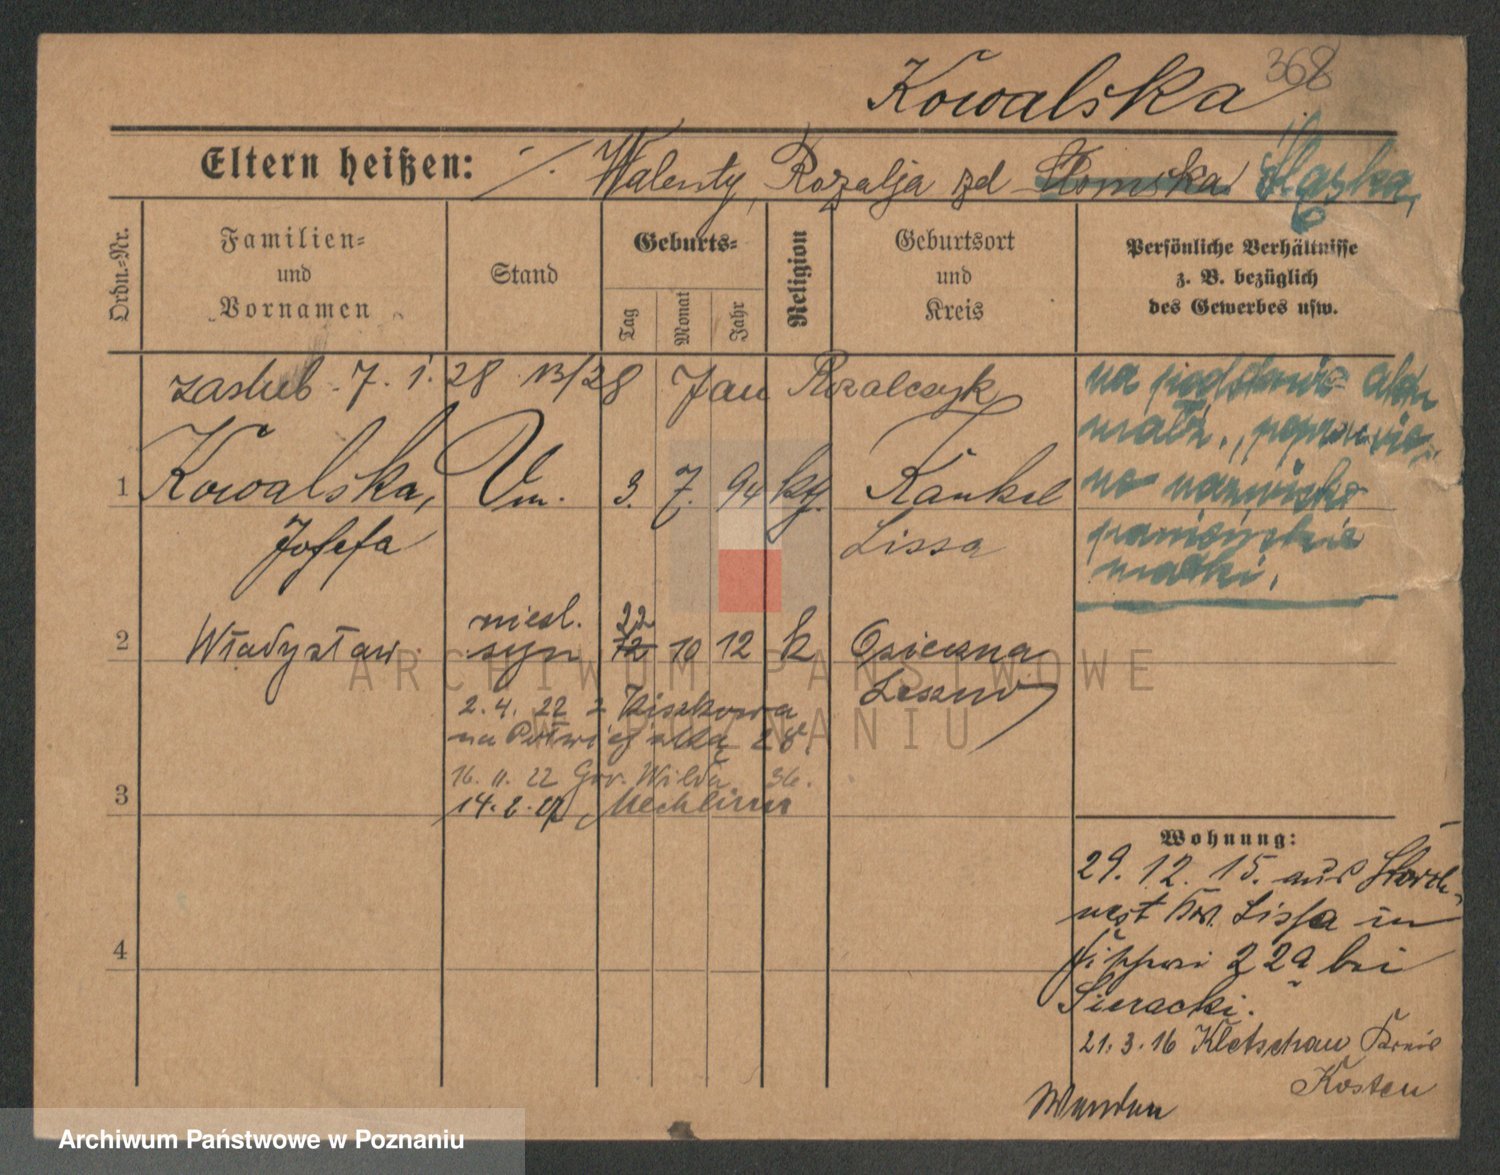 368
Kowalska
Eltern heißen: ·/. Walenty, Rozalja zd Słomska Śląska,
Ordn.-Nr.
Familien- und Vornamen
Stand
Geburts-
Tag
Monat
Jahr
Religion
Geburtsort und Kreis
Persönliche Verhältnisse z. B. bezüglich des Gewerbes usw.
zaślub. 7. 1. 28 13/28 Jan Rozalczyk
na podstawie aktu
małż., poprawio,
no nazwisko
panieńskie
matki.
1 Kowalska, Josefa
3. 7. 94 kth. Kankel
Lissa
2 Władysław
nieśl. syn
22
12 10 12 k Osieczna
Leszno
2. 4. 22
na 28.
16. 11. 22 Gór. Wilda 36.
14. 2. Mechlin
3
4
Wohnung:
29. 12. 15. aus Storch-
nest Krs. Lissa in
229 bei
Sieracki.
21. 3. 16 Kletschau Kreis
Kosten
ARCHIWUM PAŃSTWOWE
W POZNANIU
Archiwum Państwowe w Poznaniu